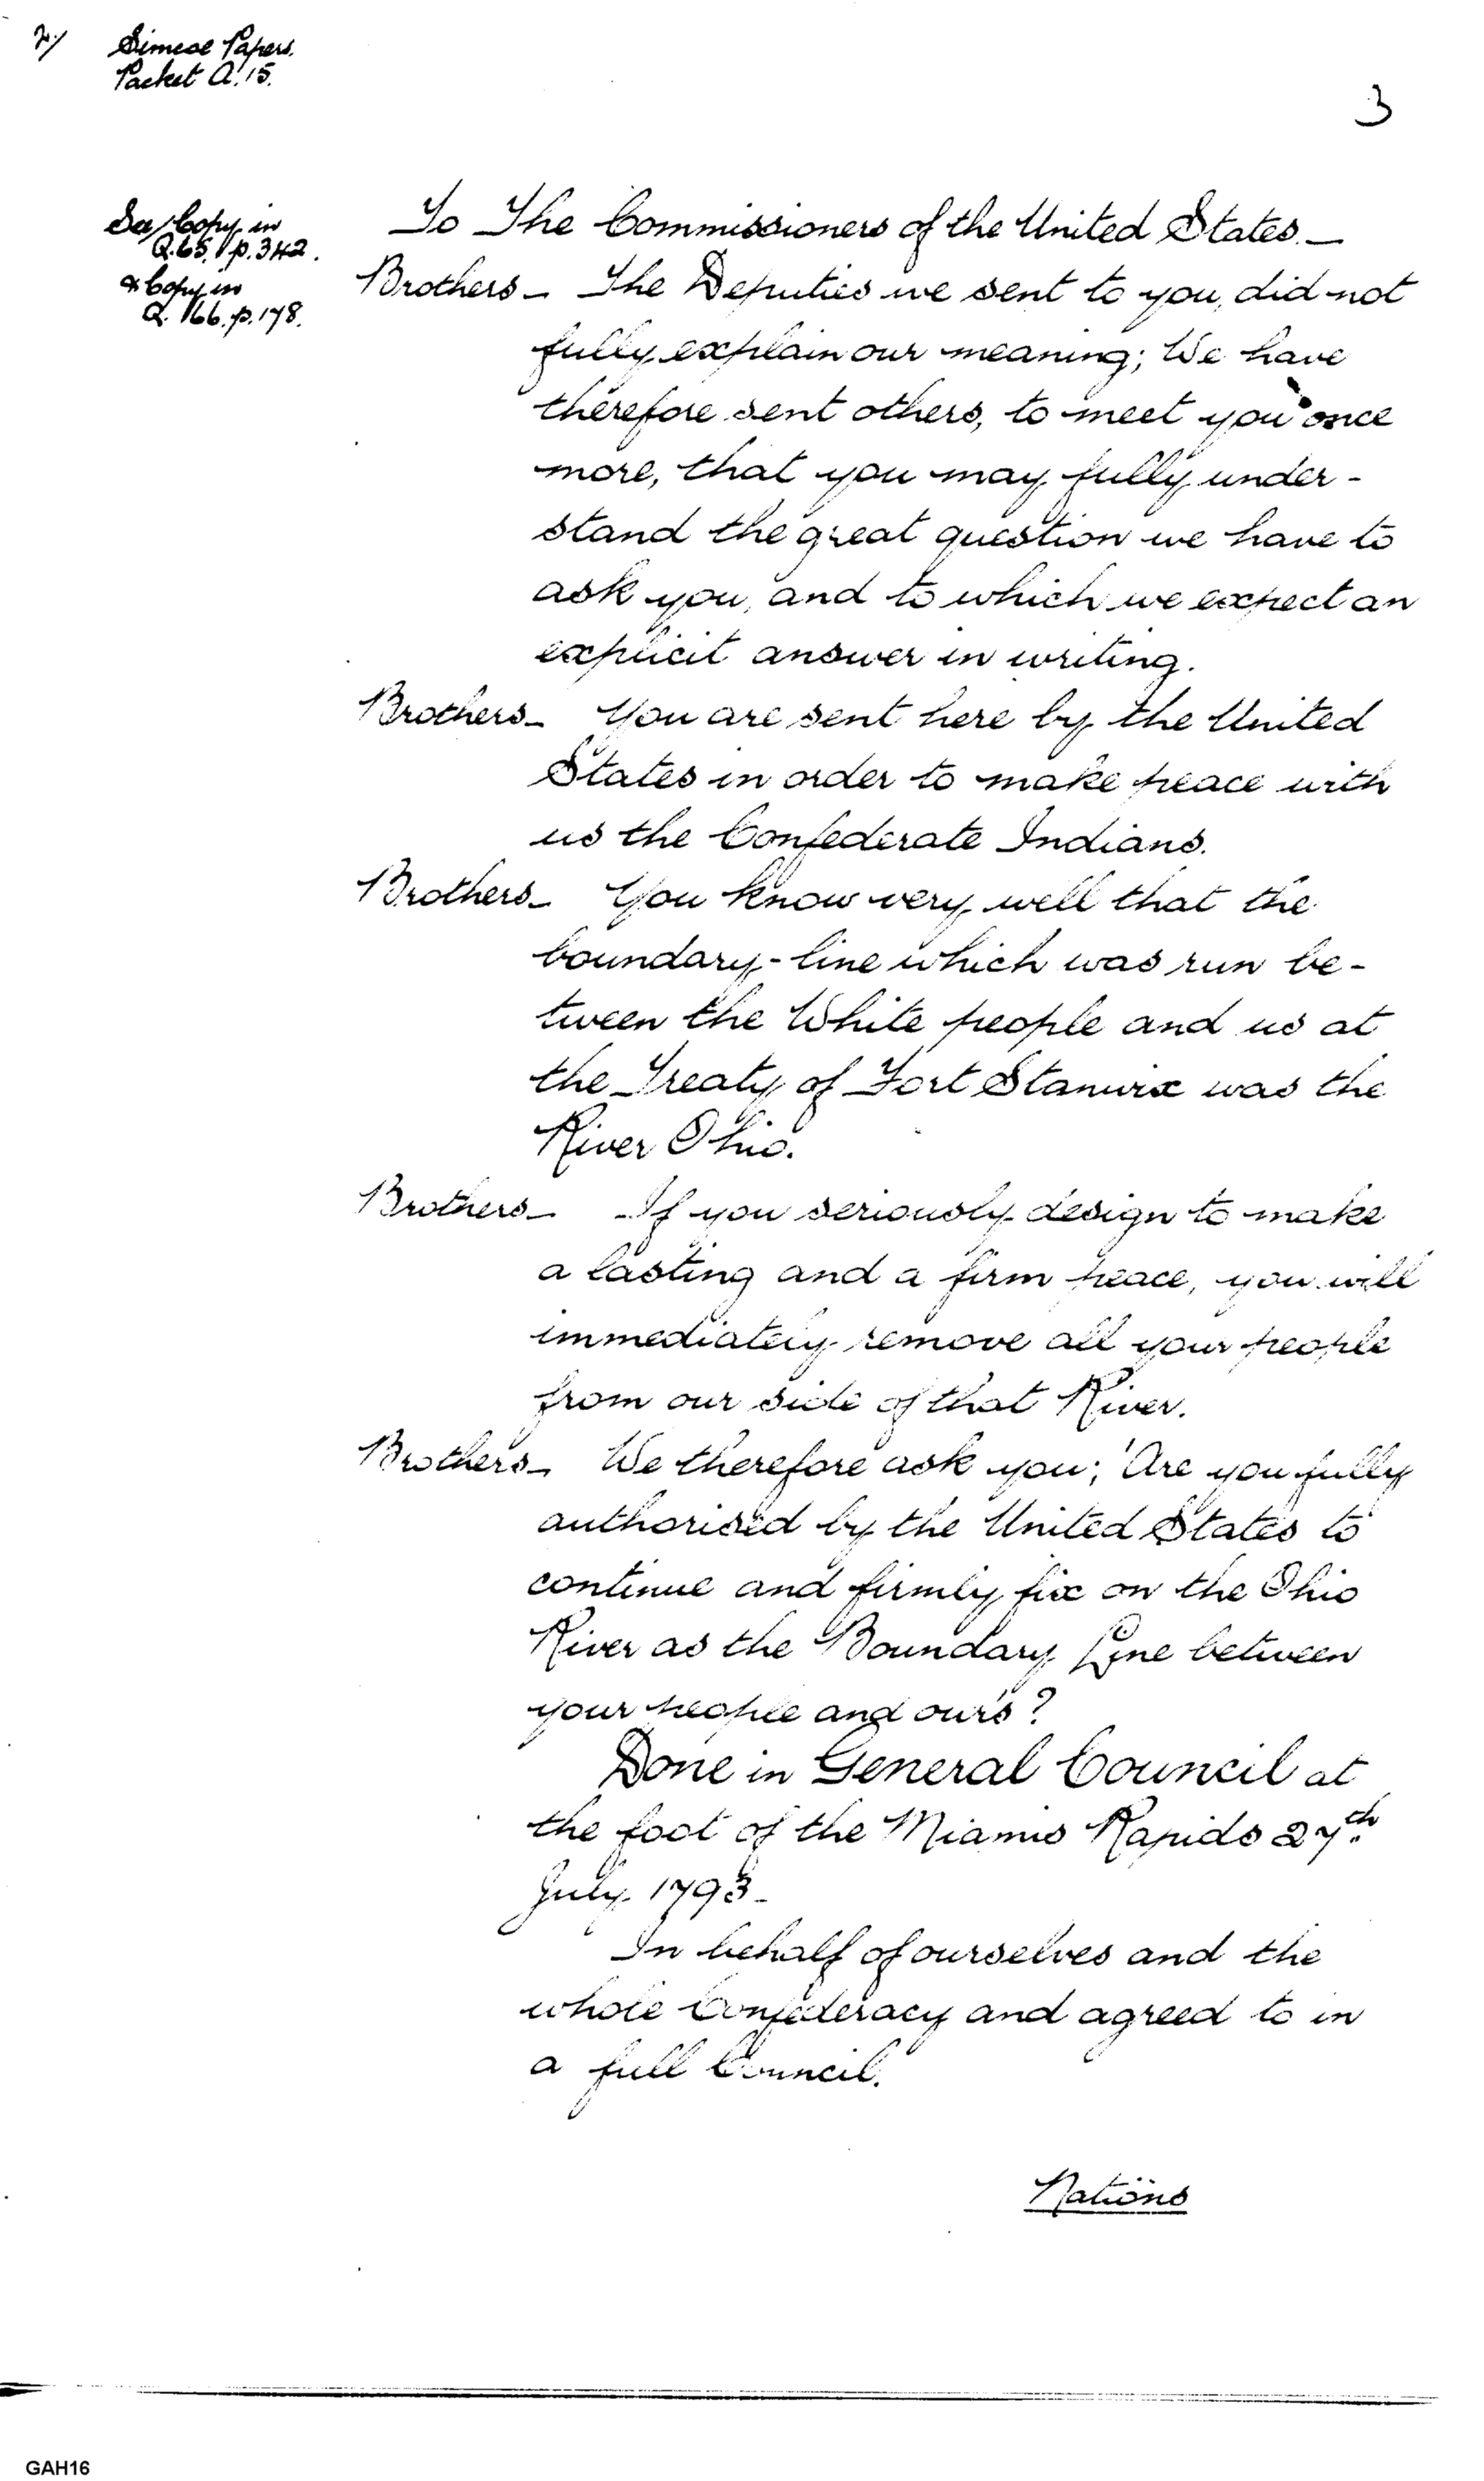 2/ Simcoe Papers.
Packet A. 15.
3
See Copy in
Q. 65, p. 342.
& Copy in
Q. 66. p. 178.
To The Commissioners of the United States. —
Brothers — The Deputies we sent to you, did not
fully explain our meaning; We have
therefore sent others, to meet you once
more, that you may fully under-
stand the great question we have to
ask you, and to which we expect an
explicit answer in writing.
Brothers — You are sent here by the United
States in order to make peace with
us the Confederate Indians.
Brothers — You know very well that the
boundary-line which was run be-
tween the White people and us at
the Treaty of Fort Stanwix was the
River Ohio.
Brothers — If you seriously design to make
a lasting and a firm peace, you will
immediately remove all your people
from our side of that River.
Brothers — We therefore ask you; 'Are you fully
authorised by the United States to
continue and firmly fix on the Ohio
River as the Boundary Line between
your people and our's?
Done in General Council at
the foot of the Miamis Rapids 27th
July 1793 —
In behalf of ourselves and the
whole Confederacy and agreed to in
a full Council.
Nations
GAH16